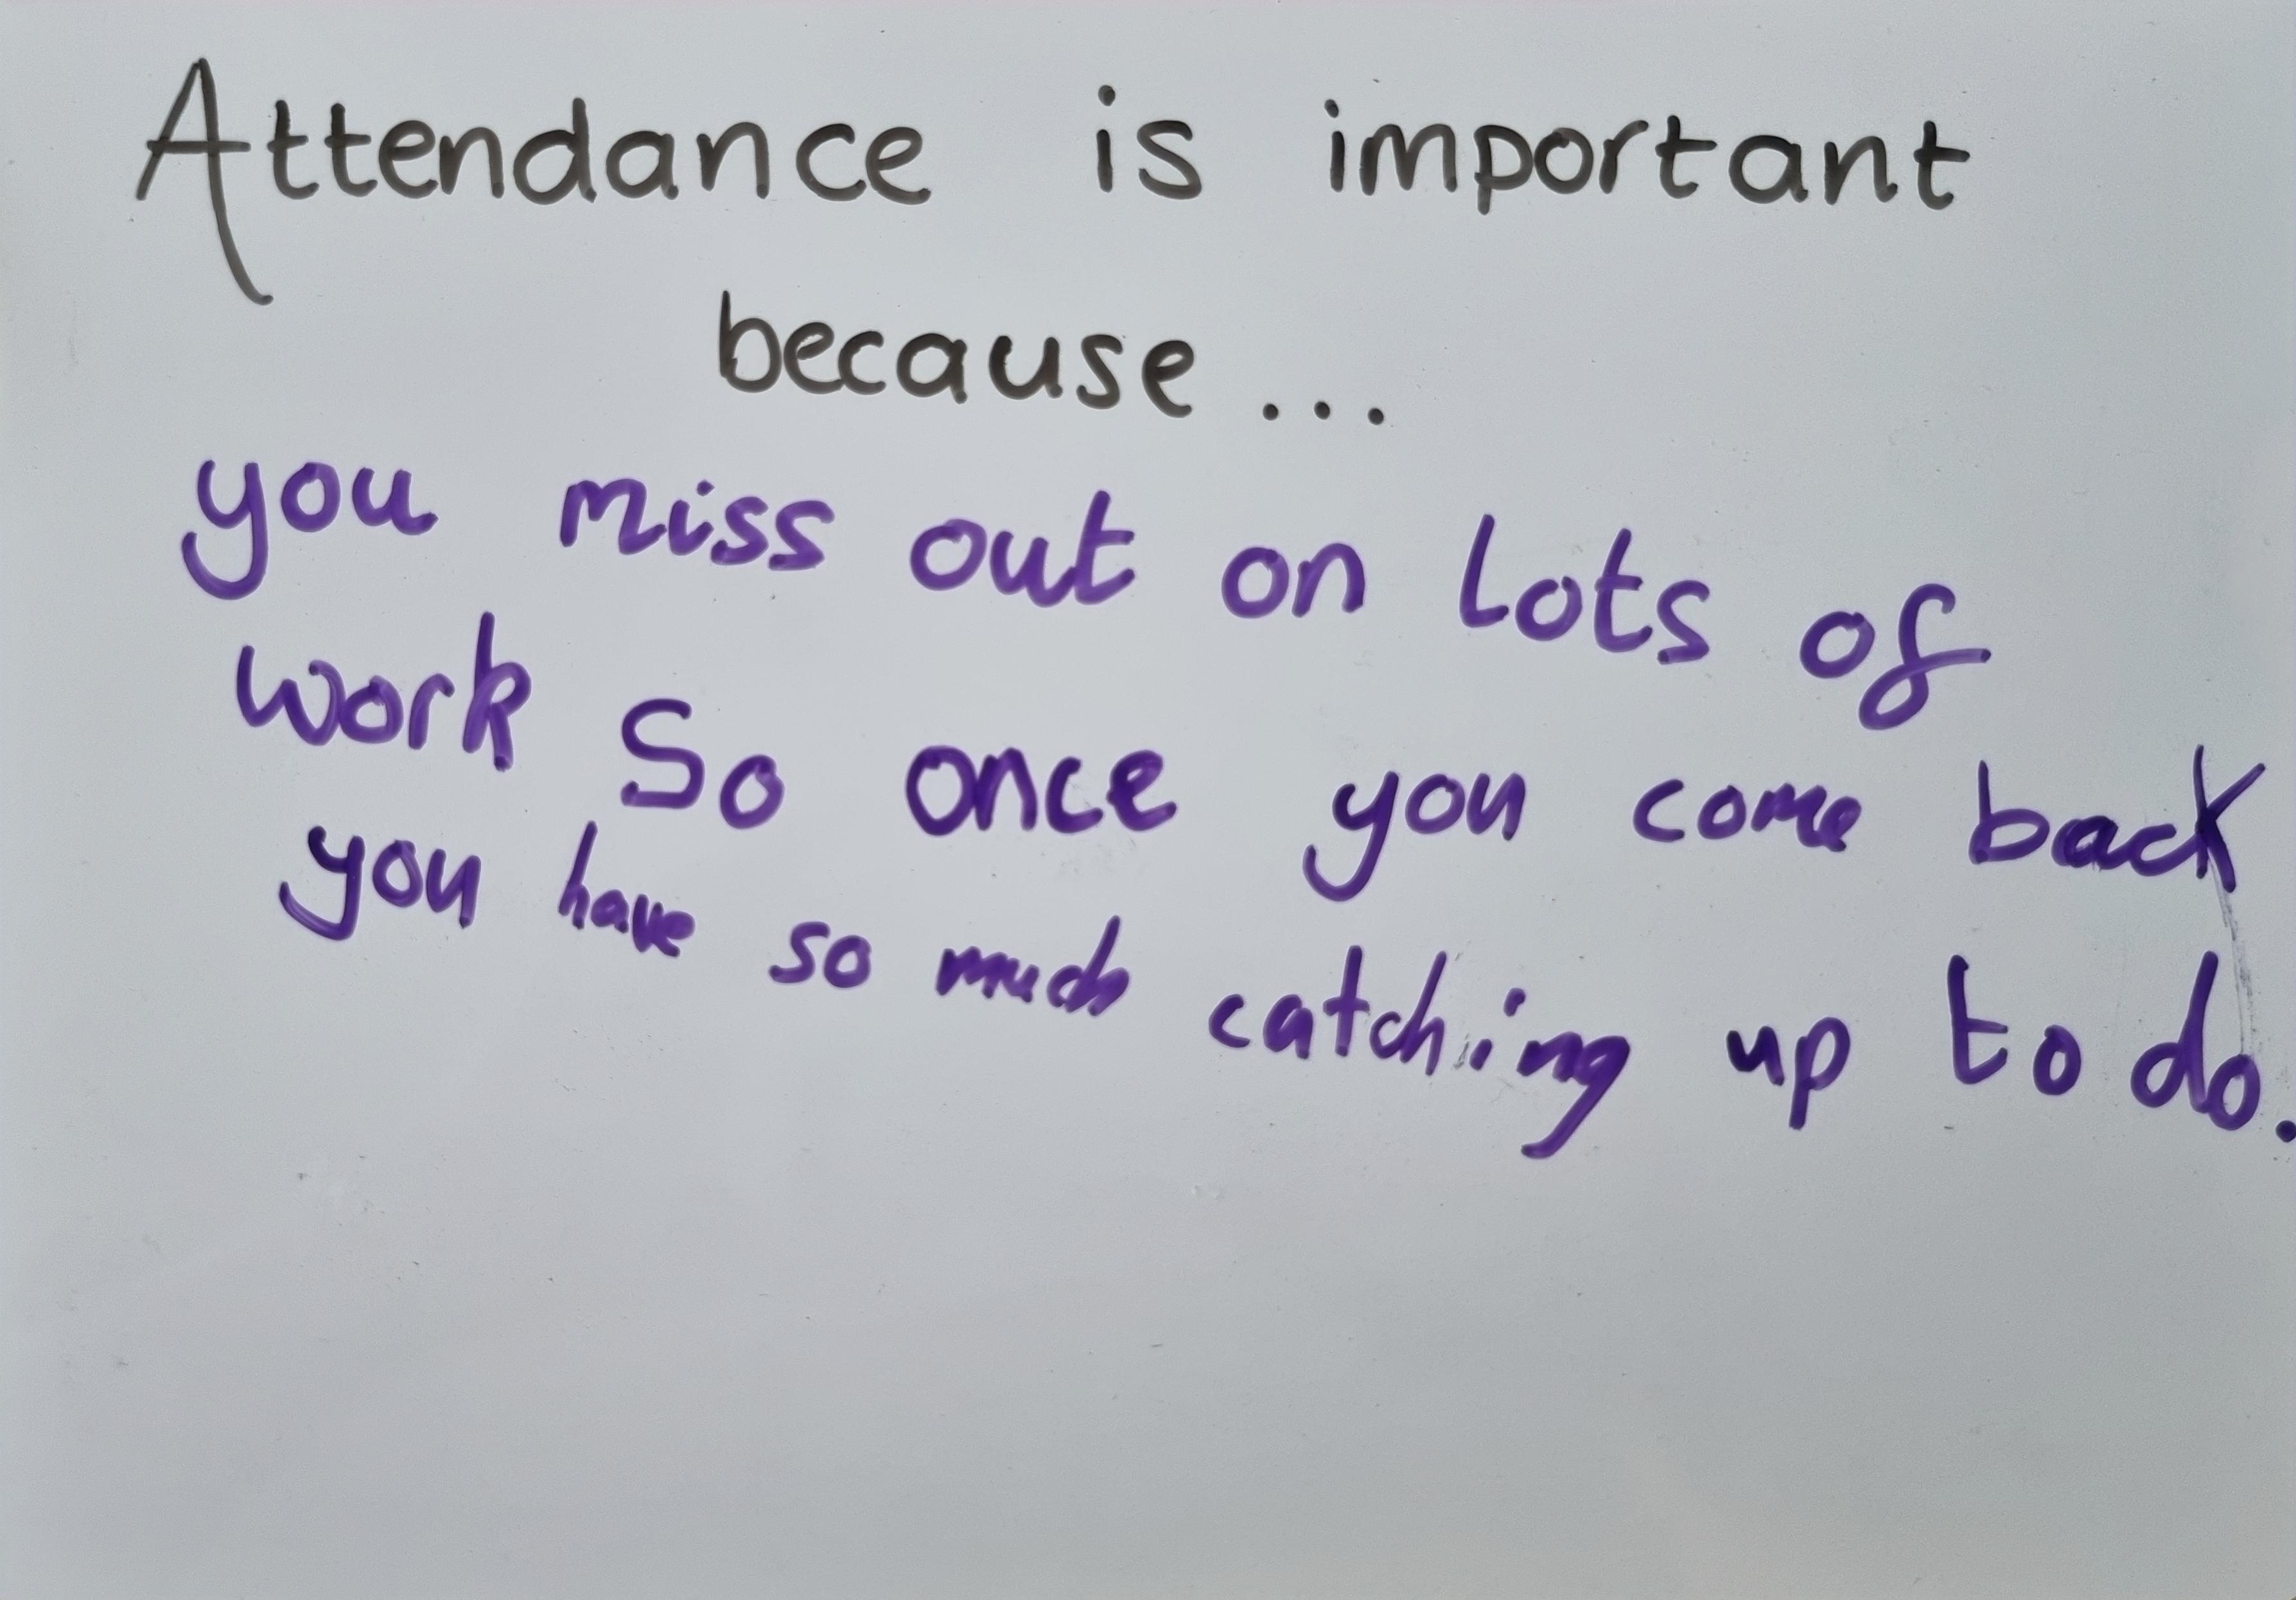 Attendance is important
because...
you miss out on lots of
work So once you come back
you have so much catching up to do.